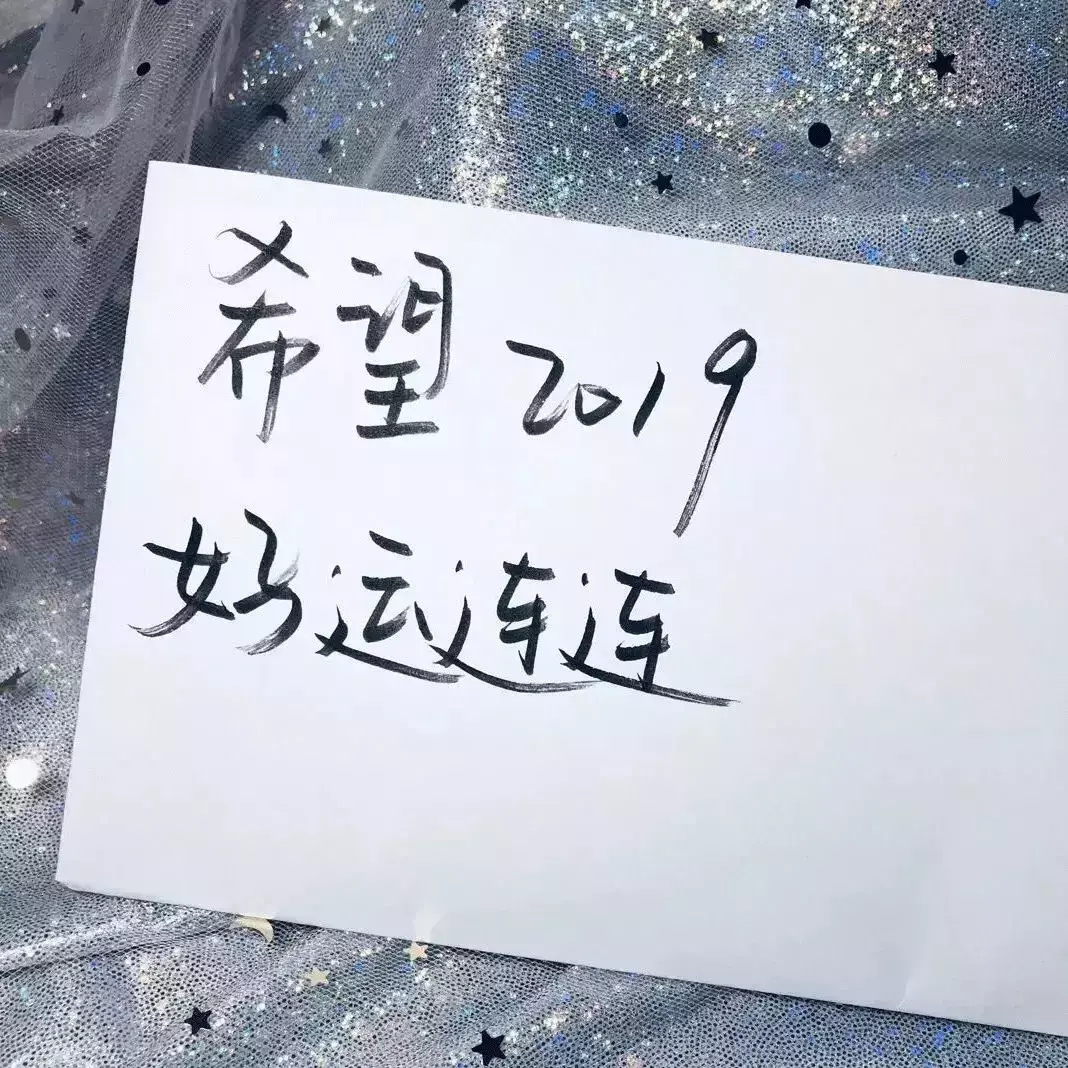 希望2019
好运连连